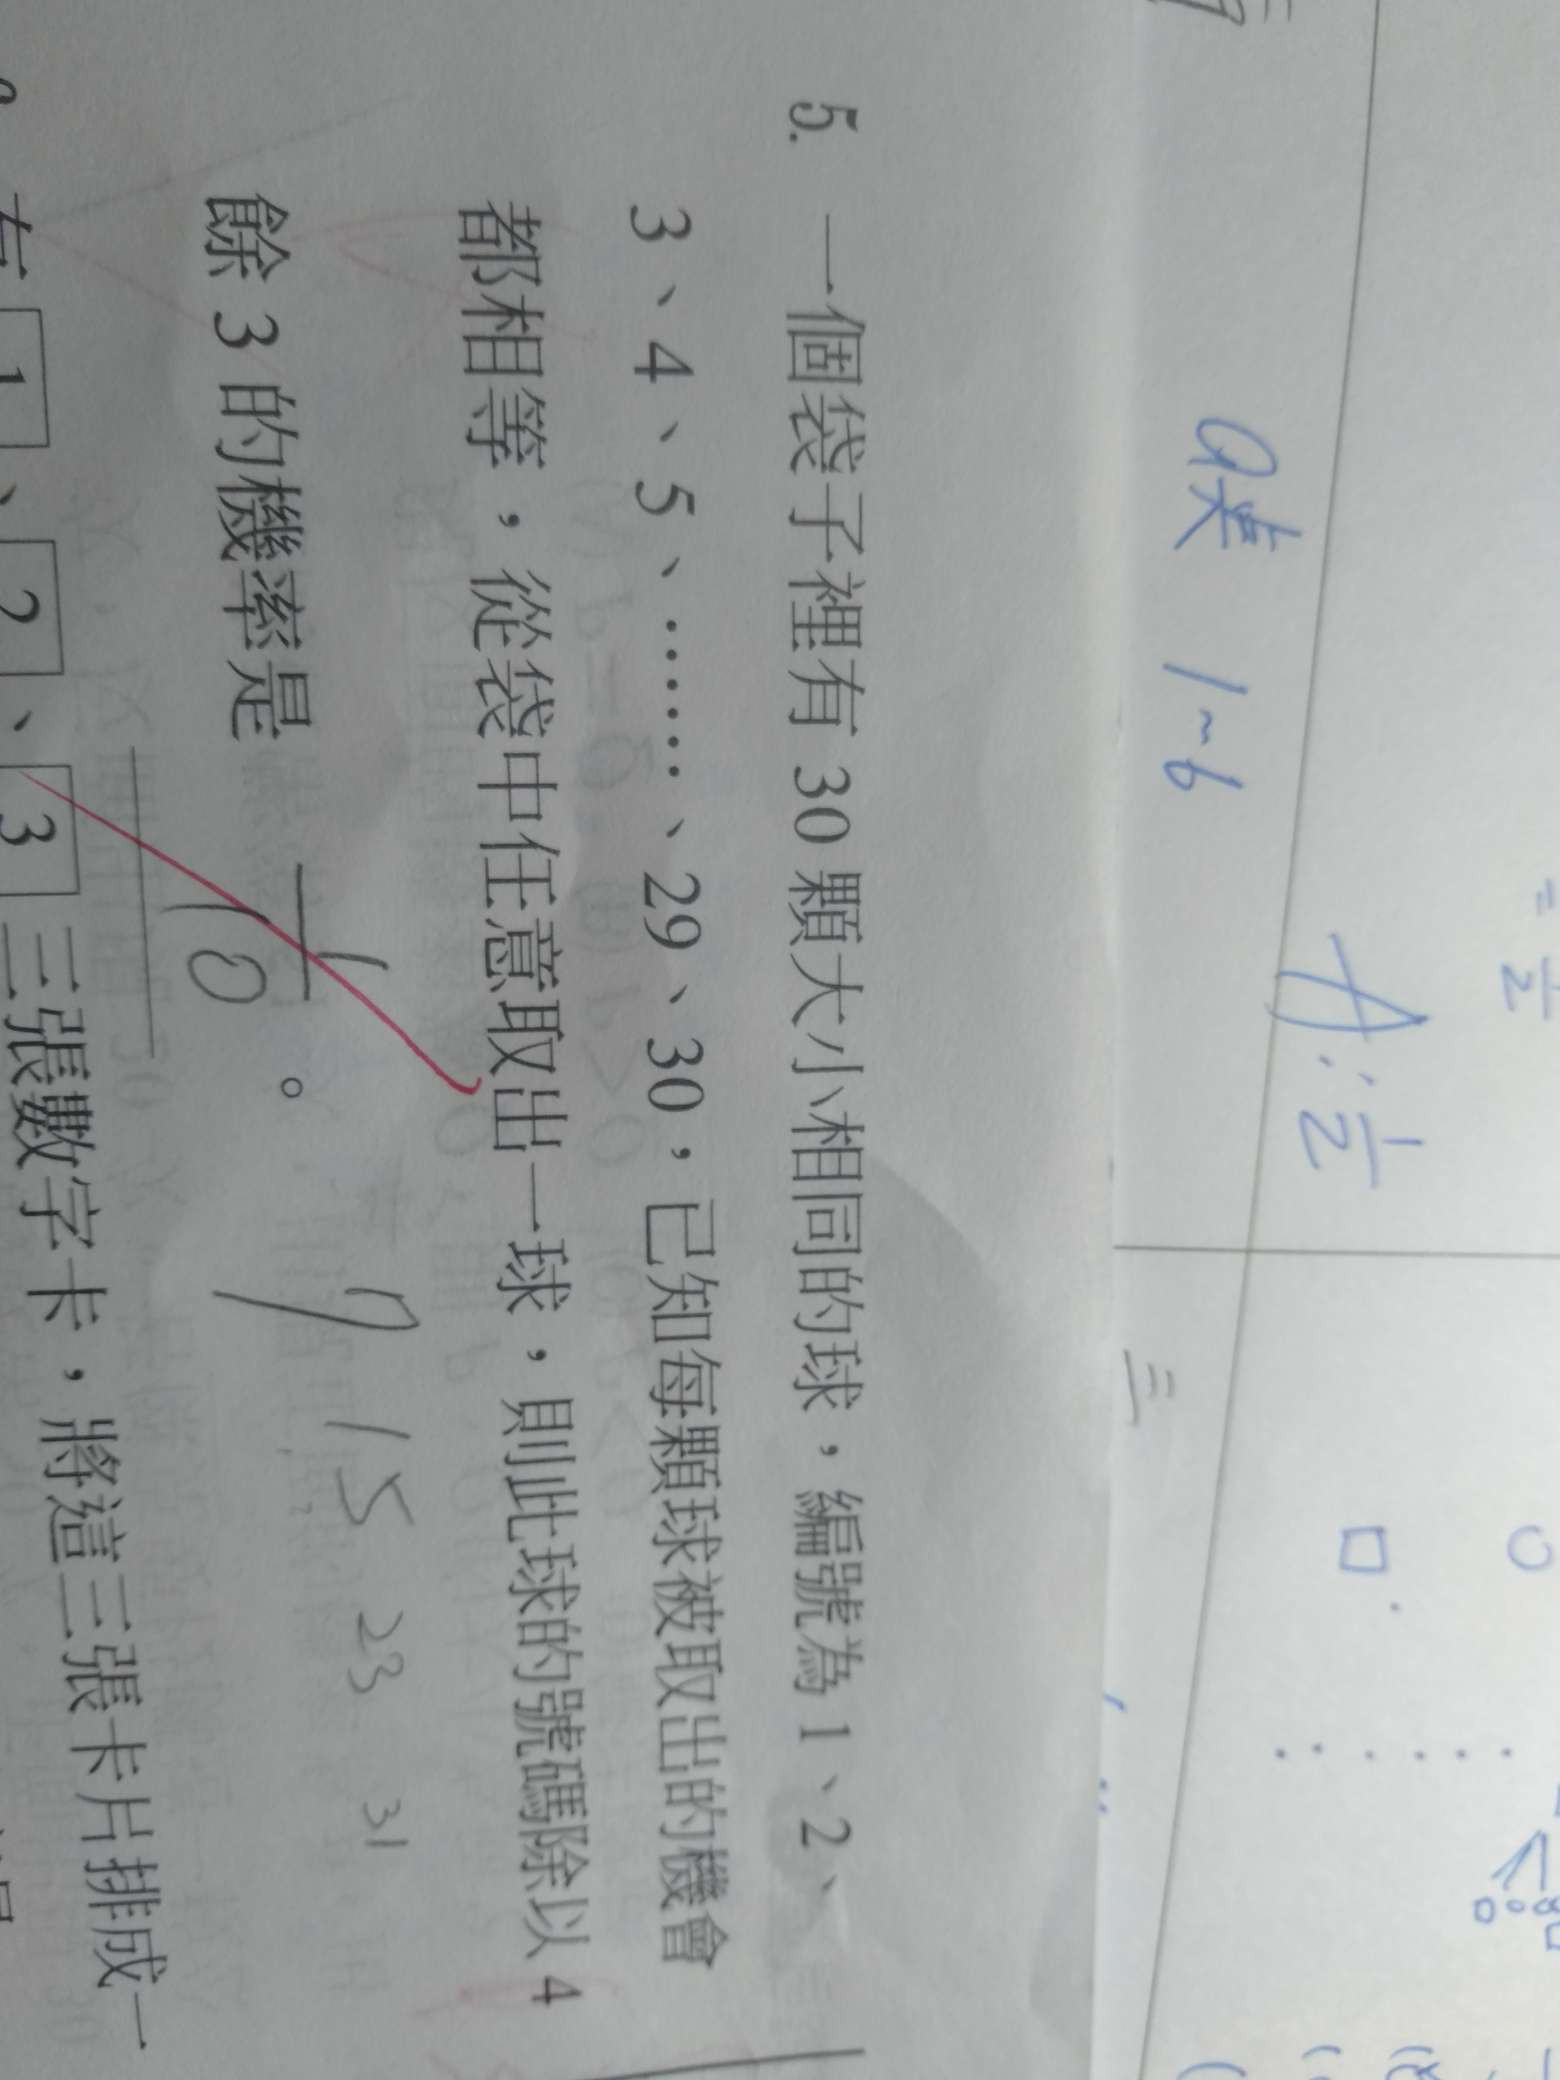 = 1/2
A: 1/2
Q表 1~6
5. 一個袋子裡有 30 顆大小相同的球，編號為 1、2、
3、4、5、……、29、30，已知每顆球被取出的機會
都相等，從袋中任意取出一球，則此球的號碼除以 4
餘 3 的機率是 1/10 。
7 15 23 31
有 1、2、3 三張數字卡，將這三張卡片排成一